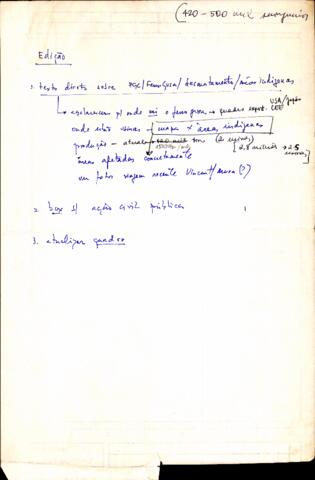 (420 - 500 mil
Edição
1. texto direto sobre PGC/Ferro Gusa/desmatamento/áreas indígenas
esclarecer p/ onde vai o ferro gusa → quadro export. USA/Japão CEE
onde estão usinas - mapa x áreas indígenas
produção - atual ton (2 usinas)
[2,8 milhões → 25
áreas afetadas concretamente
ver fotos viagem recente Vincent/ (?)
2. box s/ ação civil pública
3. atualizar quadro